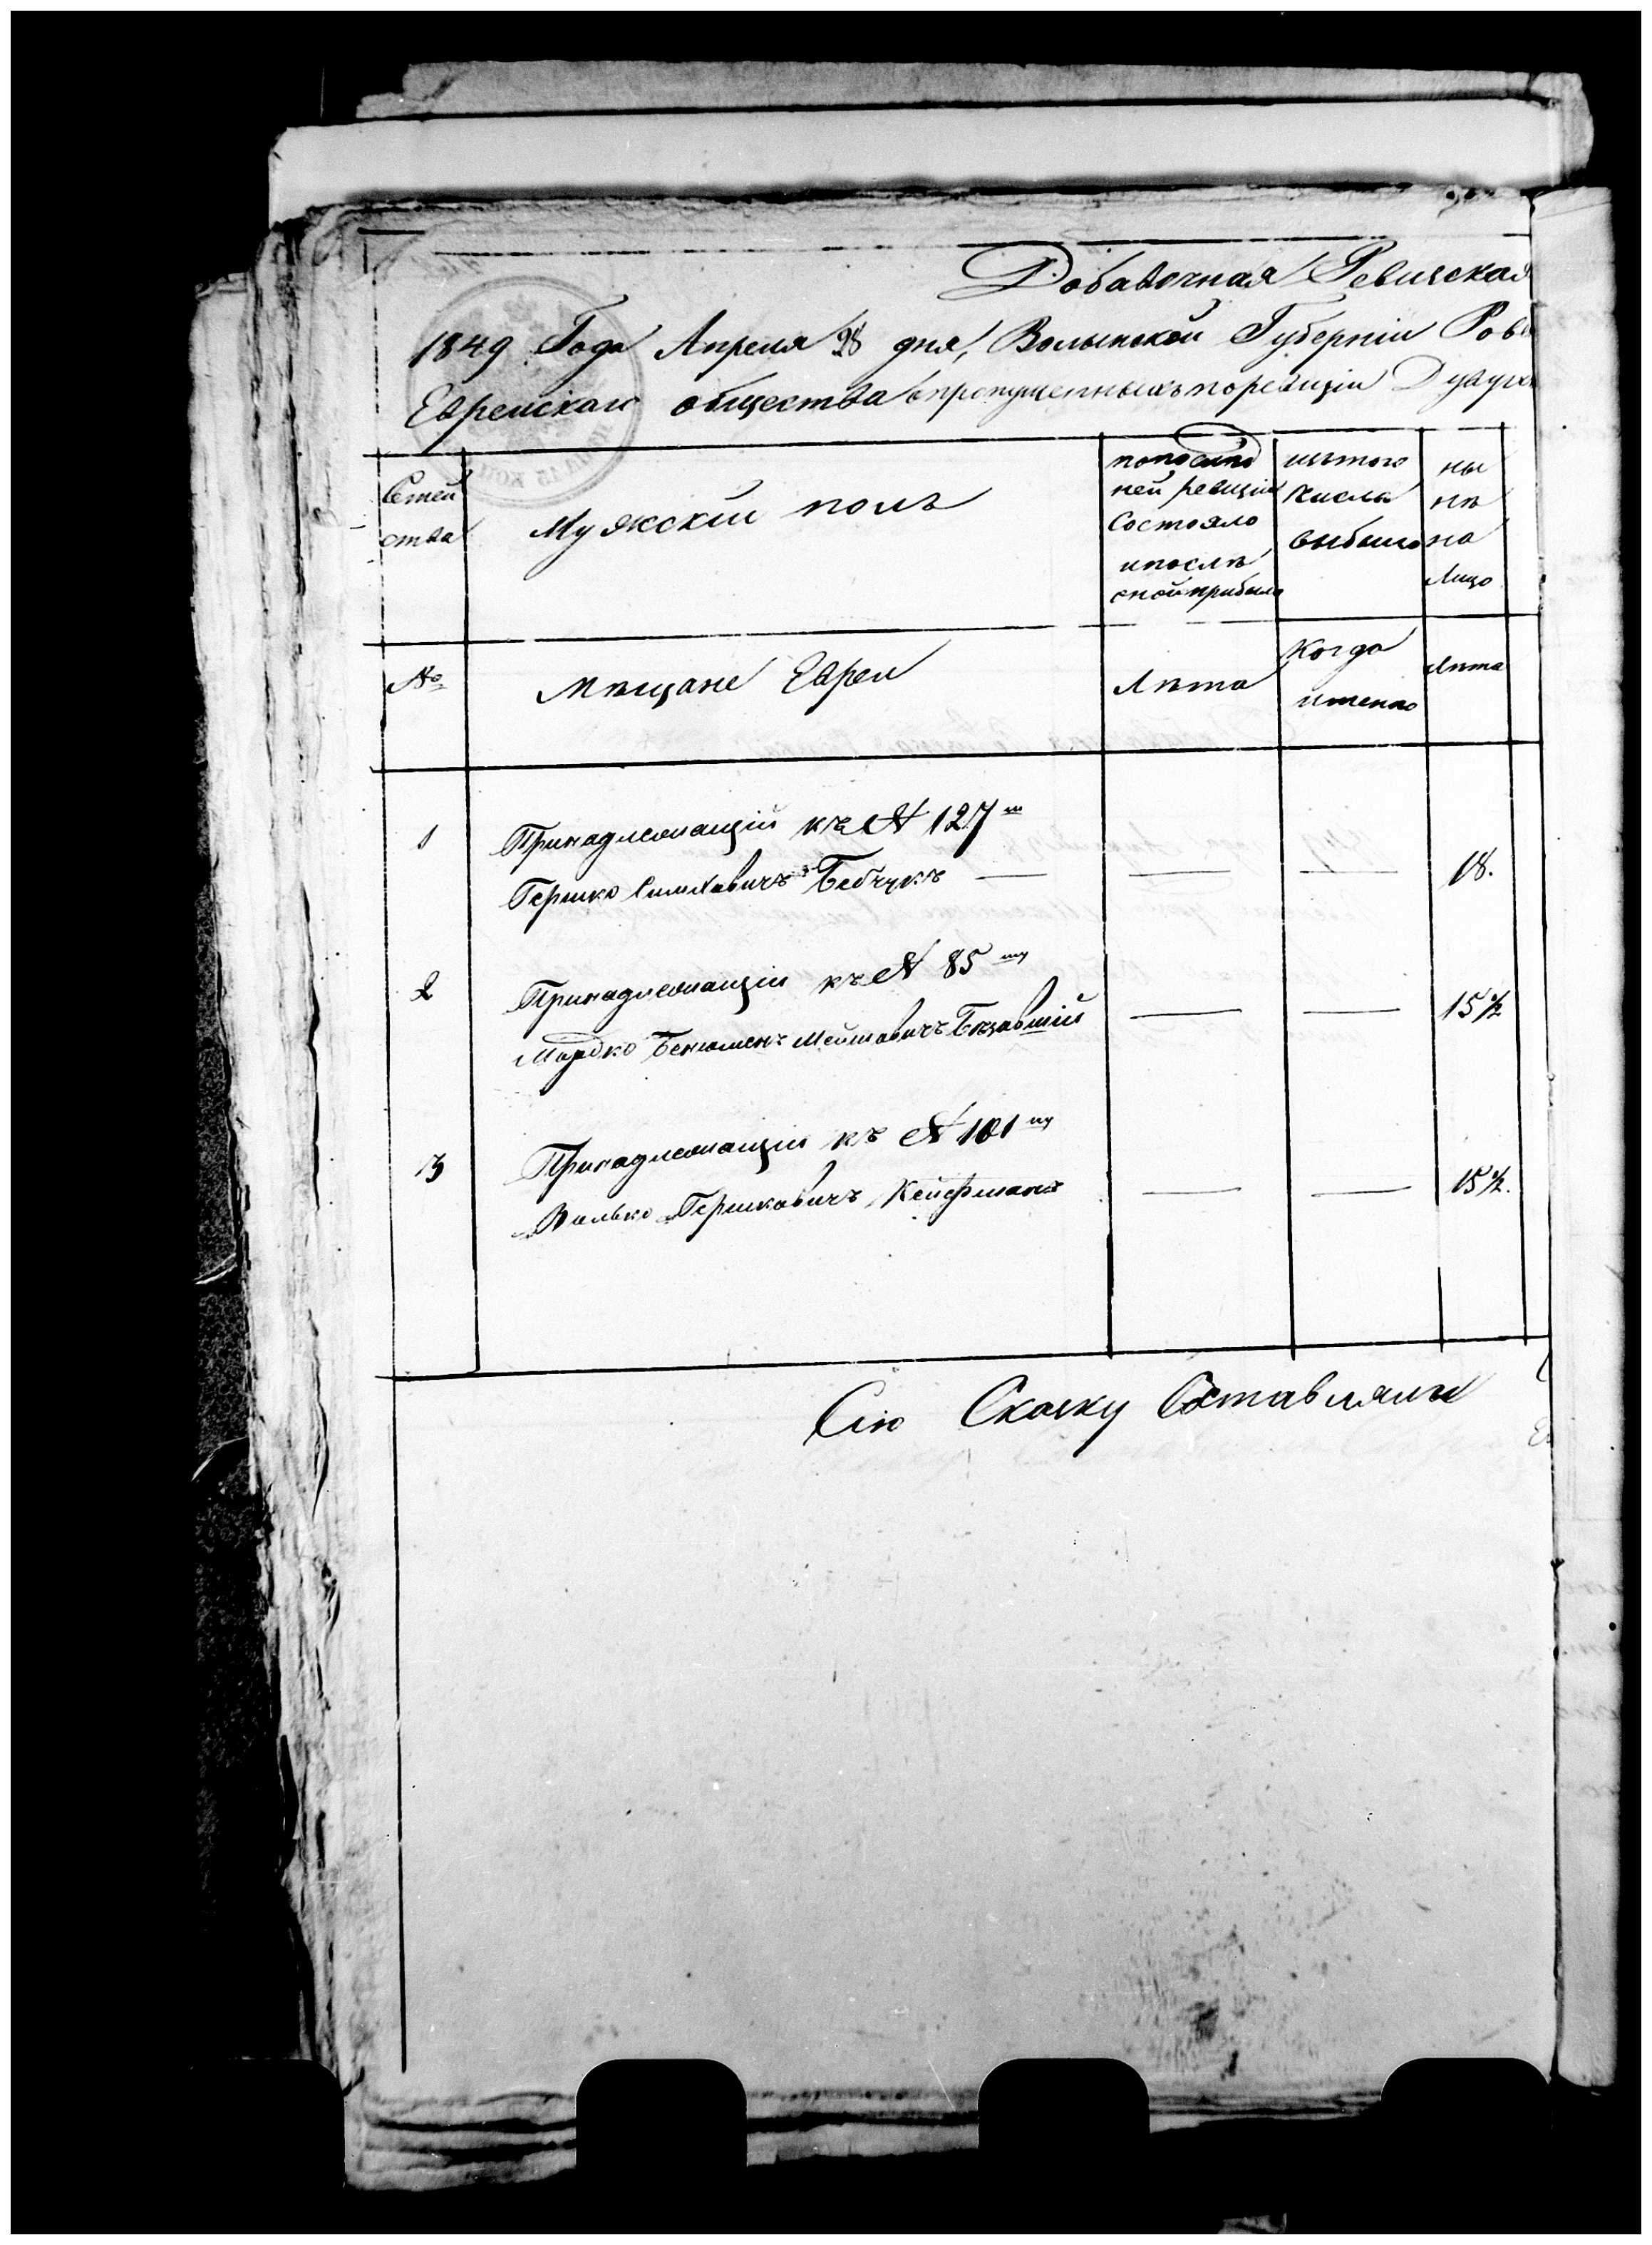 Добавочная Ревизская
1849 Года Апреля 28 дня, Волынской Губерніи Рове
Еврейскаго общества опропущенныхъ поревизіи Душах
Семей
ства
Мужскій полъ
попослѣд
ней ревизіи
Состояло
ипослѣ
оной прибыло
изътого
числа
выбыло
ны
нѣ
на
Лицо
№
Мѣщане Евреи
Лѣта
Когда
именно
Лѣта
1
Принадлежащій къ № 127
Гершко Бебчукъ
18.
2
Принадлежащій къ № 85 му
Мордко Бенюменъ
15½
3
Принадлежащій къ № 101 му
Волько Гершковичъ Кейфманъ
15½.
Сію Скаску Составляли